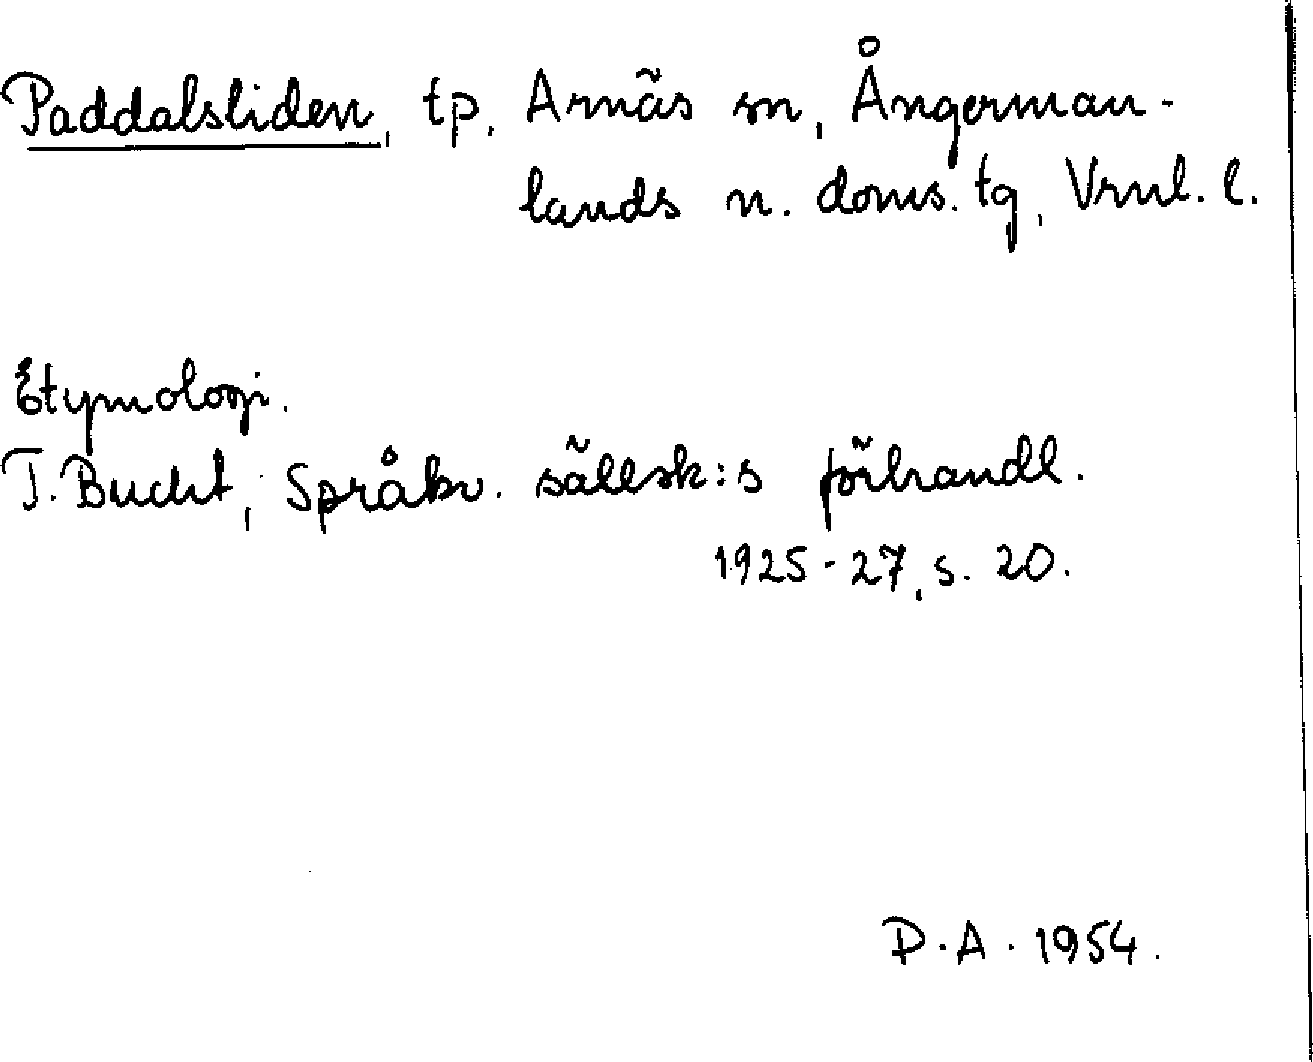 Paddalsliden, tp, Arnäs sn, Ångerman-
lands n. doms. tg, Vrnl. l.
Etymologi.
T. Bucht, Språkv. sällsk:s förhandl.
1925-27, s. 20.
D.A. 1954.